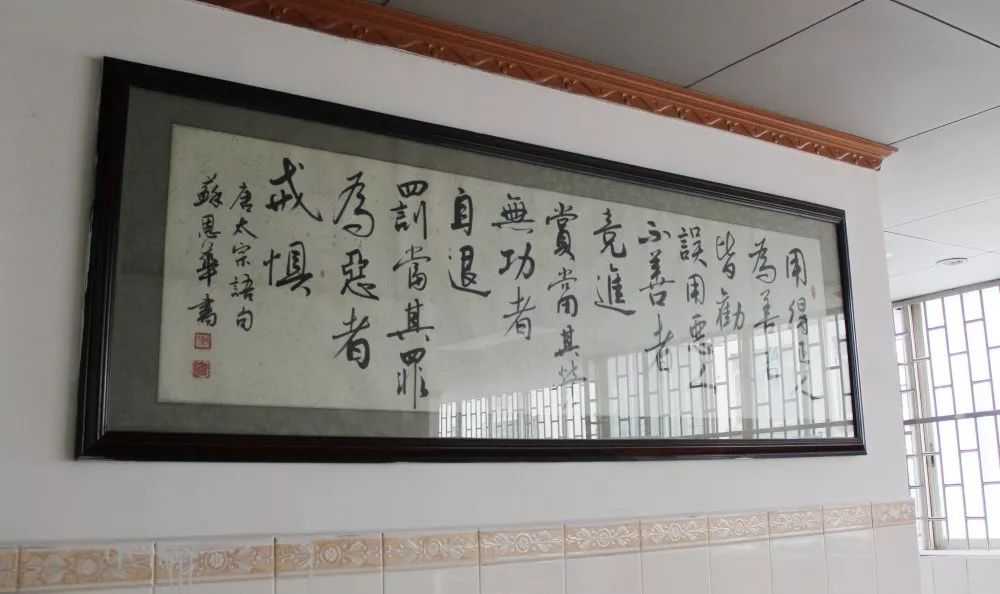 用得正人
為善者
皆勸
誤用悪人
不善者
竞進
賞當其勞
無功者
自退
罰當其罪
為惡者
戒惧
唐太宗語句
蘇恩華書